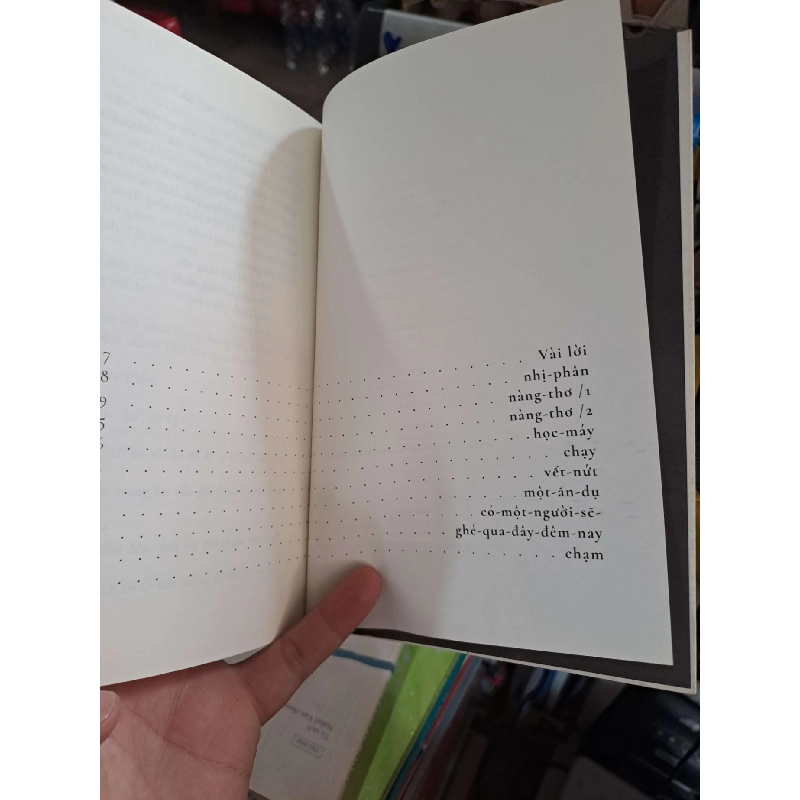 7 Vài lời
8 nhị-phân
9 nàng-thơ /1
5 nàng-thơ /2
học-máy
chạy
vết-nứt
một-ẩn-dụ
có-một-người-sẽ-
ghé-qua-đây-đêm-nay
chạm